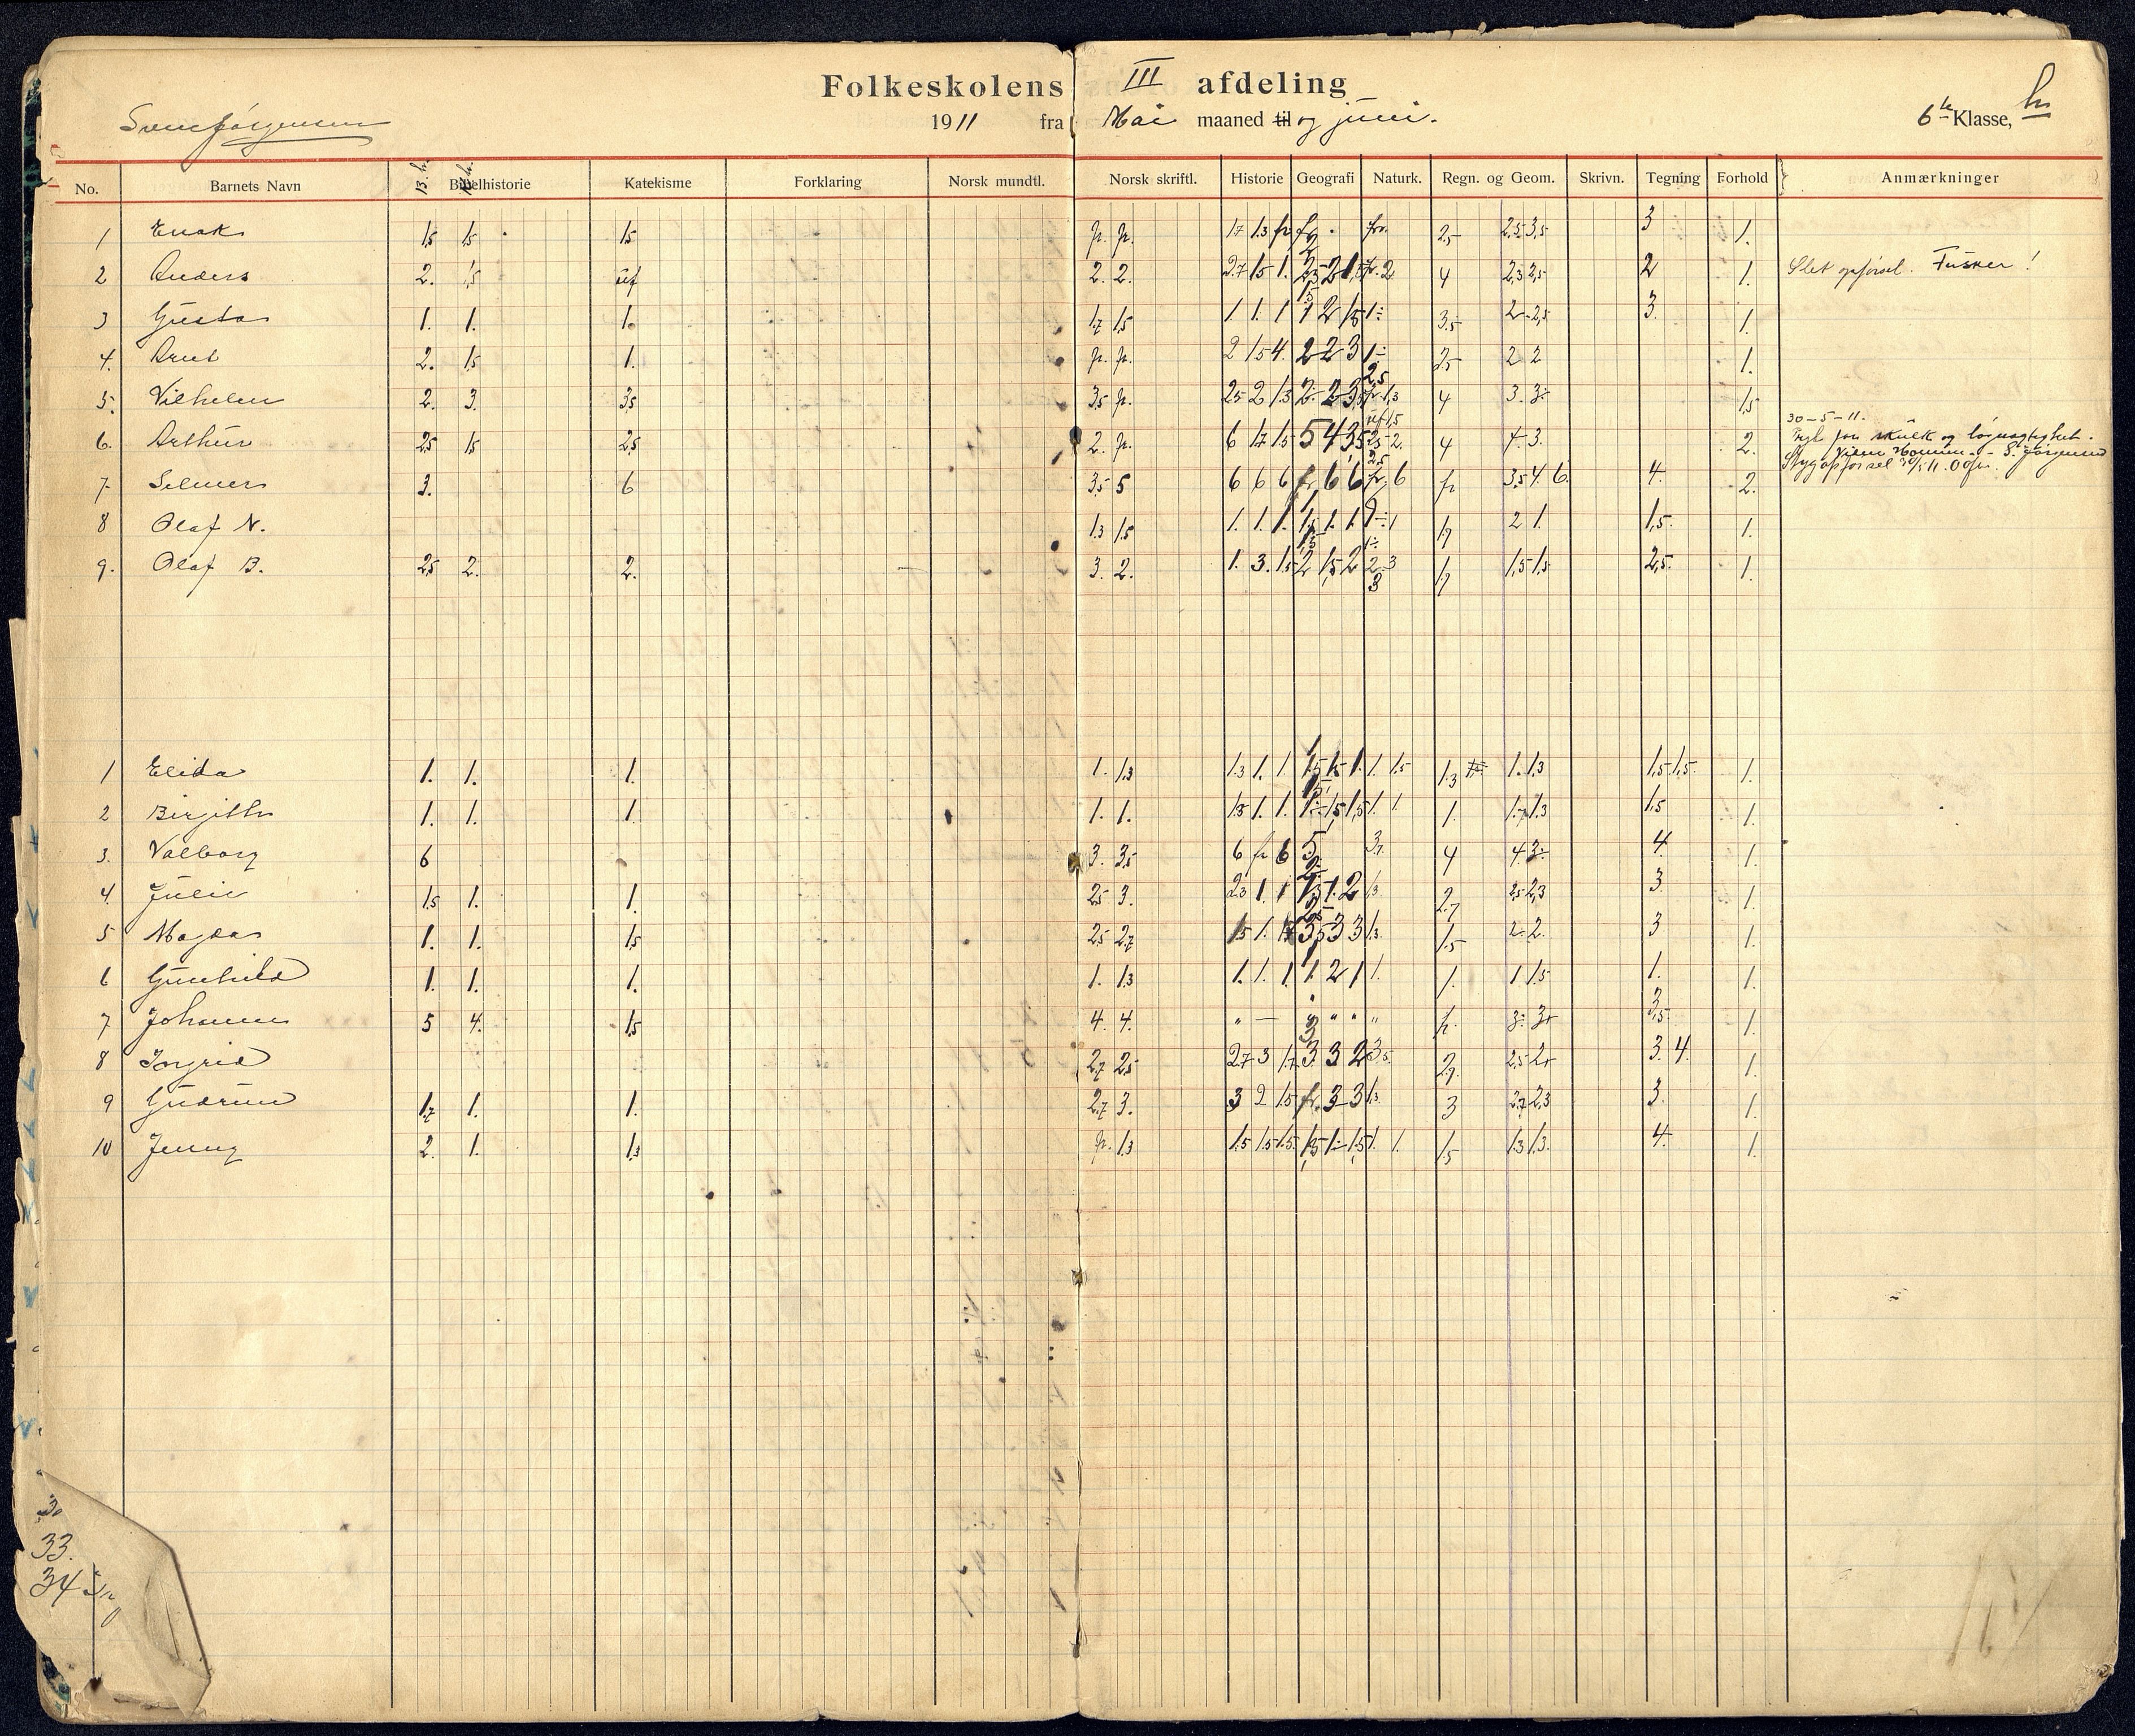 Folkeskolens III afdeling
Sven Jörgensen 1911 fra Mai maaned til og juni. 6te Klasse,
No. Barnets Navn Bibelhistorie Katekisme Forklaring Norsk mundtl. Norsk skriftl. Historie Geografi Naturk. Regn. og Geom. Skrivn. Tegning Forhold Anmærkninger
1 Enok 1,5 1,5 1,5 fr. fr. 1,7 1,3 fr fr 2,5 2,5 3,5 3 1.
2 Anders 2. 1,5 uf 2. 2. 2,7 1,5 1. 4 2,3 2,5 2 1. Slet opførsel. Fusker!
3 Gusta 1. 1. 1. 1,7 1,5 1 1. 1 1 2 1,5 1÷ 3,5 2- 2,5 3. 1.
4. Arnt 2. 1,5 1. fr. fr. 2 1,5 4. 2 2 3 1÷ 2,5 2 2 1.
5. Vilhelm 2. 3. 3,5 3,5 fr. 2,5 2 1,3 4 3. 3÷ 1,5
30-5-11.
6. Arthur 2,5 1,5 2,5 2. fr. 6 1,7 1,5 5 4 3,5 4 3. 2. for skulk og løgnagtighet.
S. Jörgensen
7. Selmer 3. 6 3,5 5 6 6 6 fr 6 6 fr 6 fr 3,5 4. 6. 4. 2. Stygopførsel 30/5 11.
8 Olaf N. 1,3 1,5 1. 1. 1. 1,5 1. 1. 1,7 2 1. 1,5. 1.
9. Olaf B. 2,5 2. 2. 3. 2. 1. 3. 1,5 2 1,5 2 2. 3 1,7 1,5 1,5 2,5. 1.
1 Elida 1. 1. 1. 1. 1,3 1,3 1. 1 1,5 1,5 1. 1. 1,5 1,3 1. 1,3 1,5 1,5. 1.
2 Birgitte 1. 1. 1. 1. 1. 1,3 1. 1. 1÷ 1,5 1,5 1. 1 1. 1,7 1,3 1,5 1.
3. Valborg 6 3. 3,5 6 fr 6 5 3,7 4 4 3÷ 4. 1.
4. Julie 1,5 1. 1. 2,5 3. 2,3 1. 1 1,5 1. 2 1,3 2,7 2,5 2,3 3. 1.
5 Magda 1. 1. 1,5 2,5 2,7 1,5 1. 3,5 3 3 1,3. 1,5 2÷ 2. 3 1.
6 Gunhild 1. 1. 1. 1. 1,3 1. 1. 1. 1. 2 1 1. 1. 1 1,5 1. 1.
7 Johanna 5 4. 1,5 4. 4. " — " " " fr. 3÷ 3+ 3,5. 1.
8 Ingrid 2,7 2,5 2,7 3 1,7 3. 3 2 3,5. 2,7. 2,5 2+ 3. 4.
9 Gudrun 1,7 1. 1. 2,7 3. 3 2 1,5 fr. 3 3 1,3. 3 2,7 2,3 3. 1.
10 Jenny 2. 1. 1,3 fr. 1,3 1,5 1,5 1,5. 1,5 1÷ 1,5 1. 1. 1,5 1,3 1,3. 4. 1.
33.
34